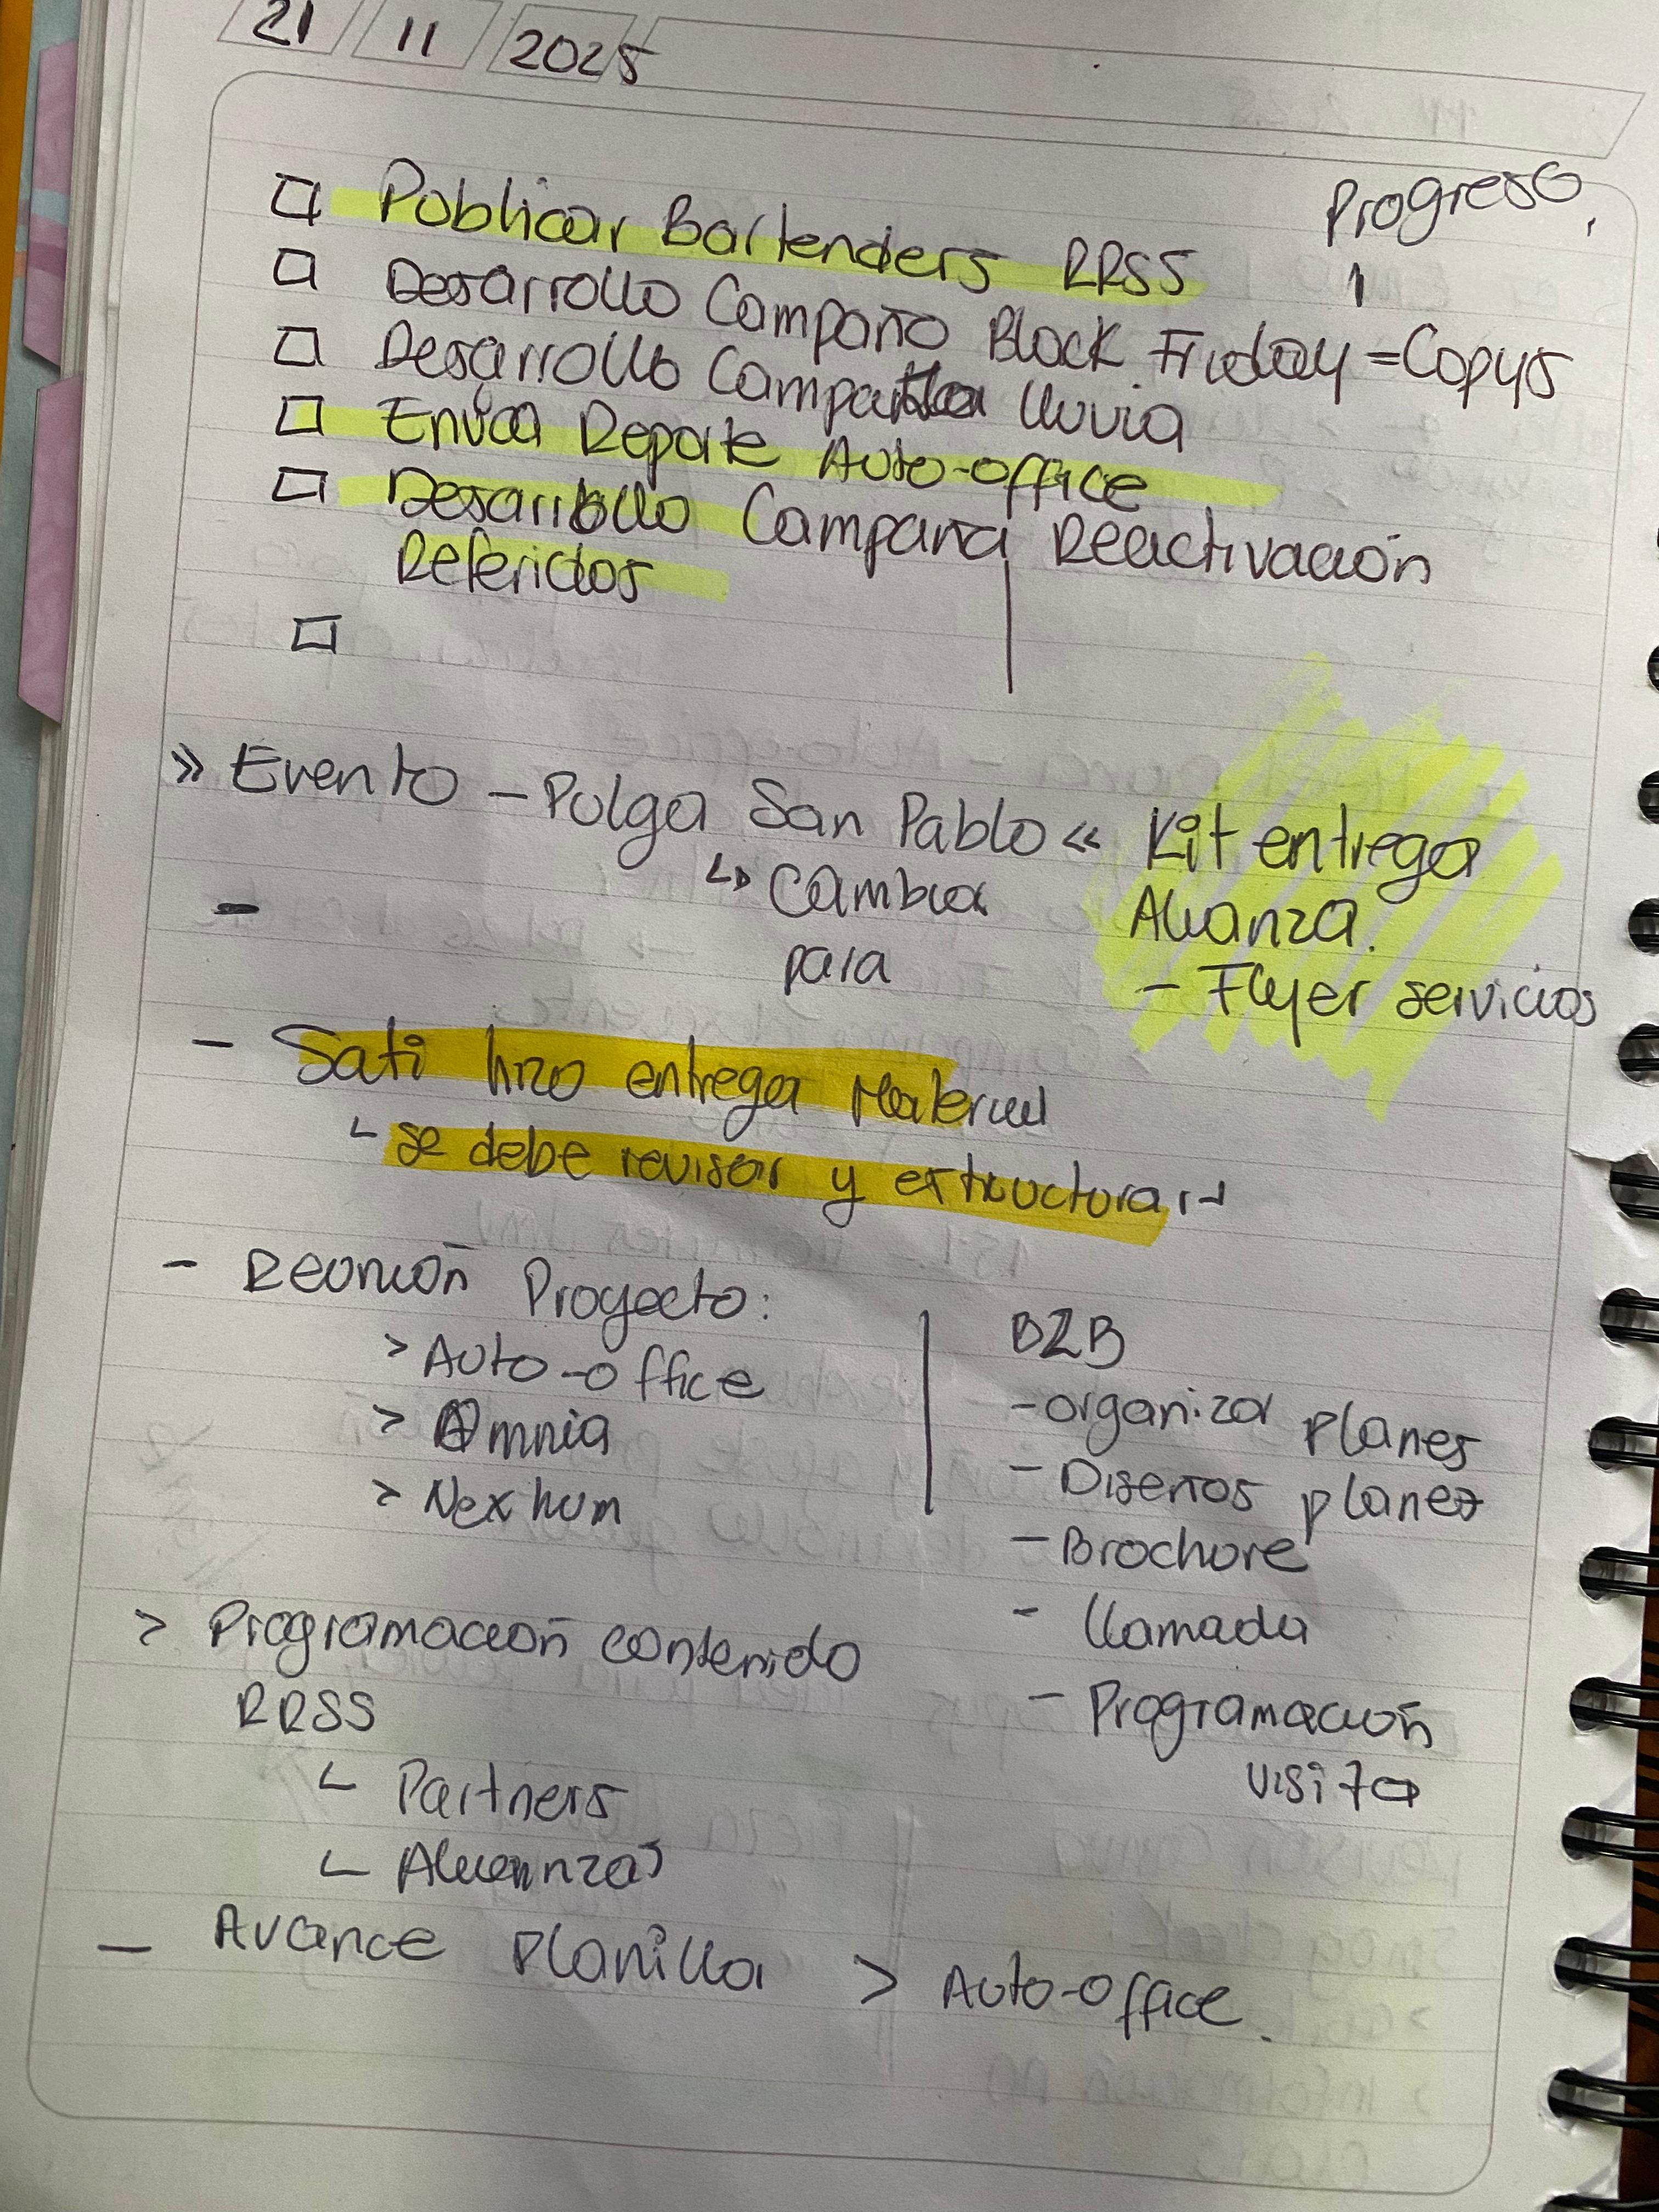 21 11 2025
□ Publicar Bartenders RRSS
Progreso,
□ Desarrollo Campaña Black Friday = Copys
□ Desarrollo Campaña lluvia
□ Envia Reporte Auto-office
□ Desarrollo Campaña Reactivación
Referidos
□
» Evento - Pulga San Pablo «
↳ Cambiar
para
Kit entrega
Alianza.
- Flyer servicios
-
- Sati hizo entrega Material
└ se debe revisar y estructurar
- Reunión Proyecto:
> Auto-office
> Omnia
> Nexhum
B2B
- organizar planes
- Diseños planes
- Brochure
- llamada
- Programación
visita
> Programación contenido
RRSS
└ Partners
└ Alianzas
- Avance Planilla > Auto-office.